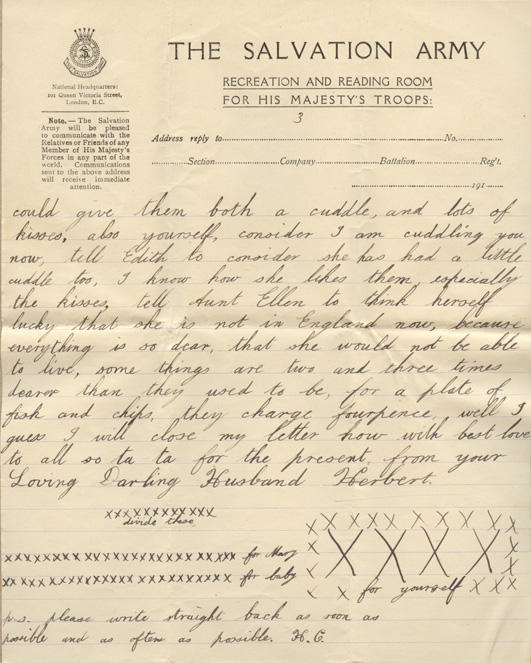 THE SALVATION ARMY
RECREATION AND READING ROOM
FOR HIS MAJESTY'S TROOPS:
National Headquarters:
101 Queen Victoria Street,
London, E.C.
Note.—The Salvation
Army will be pleased
to communicate with the
Relatives or Friends of any
Member of His Majesty's
Forces in any part of the
world. Communications
sent to the above address
will receive immediate
attention.
3
Address reply to No.
Section Company Battalion Reg't.
191
could give them both a cuddle, and lots of
kisses, also yourself, consider I am cuddling you
now, tell Edith to consider she has had a little
cuddle too, I know how she likes them, especially
the kisses, tell Aunt Ellen to think herself
lucky that she is not in England now, because
everything is so dear, that she would not be able
to live, some things are two and three times
dearer than they used to be, for a plate of
fish and chips, they charge fourpence, well I
guess I will close my letter now with best love
to all so ta ta for the present, from your
Loving Darling Husband Herbert.
xxxxxxxxxx
divide these
xxxxxxxxxxxxxxxxxxxxxx for Mary
xxxxxxxxxxxxxxxxxxxxxx for baby
X X X X X X X X X
X X X X
for yourself X X X
p.s. please write straight back as soon as
possible and as often as possible. H.C.